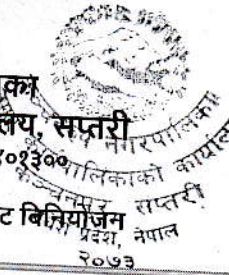 का
लय, सप्तरी
०१३००
ट बिनियोजन
नगरपालिका
पालिकाको कार्यालय
कञ्चनरूप सप्तरी
प्रदेश, नेपाल
२०७३